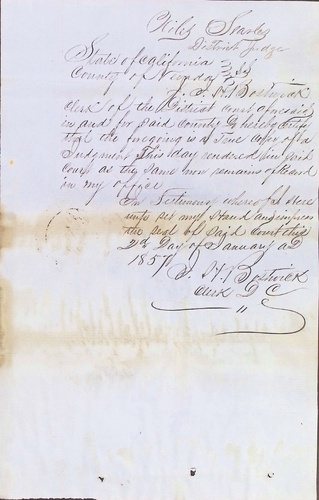 Niles Searls
District Judge
State of California } SS
County of Nevada }
I, J. H. Bostwick
clerk of the District court aforesaid
in and for said County do hereby Certify
that the foregoing is a True Copy of a
Judgement This day rendered in said
Court as the same now remains of Record
in my office
In Testimony whereof I here
unto set my Hand and impress
the seal of said Court this
2nd Day of January AD
1857
J. H. Bostwick
Clerk D C